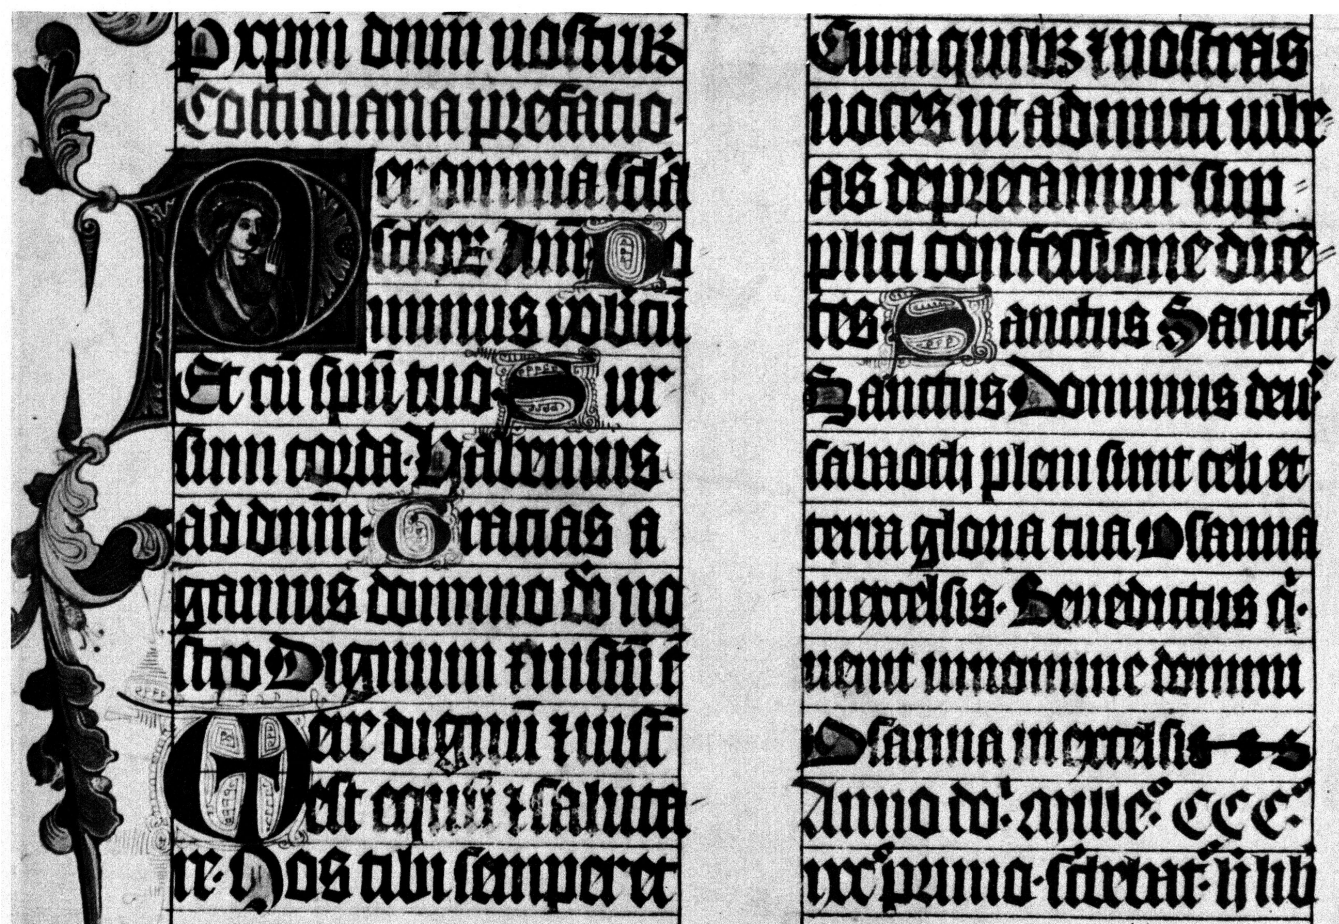 P xpm dnm nostruz
Cottidiana prefatio·
Per omnia scla
sclorz Am̄ Do
minus vobiscū
Et cū spiu tuo· Sur
sum corda· Habemus
ad dnm̄· Gratias a
gamus domino dō no
stro Dignum ⁊ iustū ē
Vere dignū ⁊ iust
est equū ⁊ saluta
re· Nos tibi semper et
Cum quibz ⁊ nostras
voces ut admitti iube
as deprecamur sup
plici confessione dicē
tes· Sanctus Sanctꝰ
Sanctus Dominus deuˢ
sabaoth pleni sunt celi et
terra gloria tua Osanna
in excelsis· Benedictus q̇
venit in nomine domini
Osanna in excelsis
Anno do· mille° CCC°
primo·